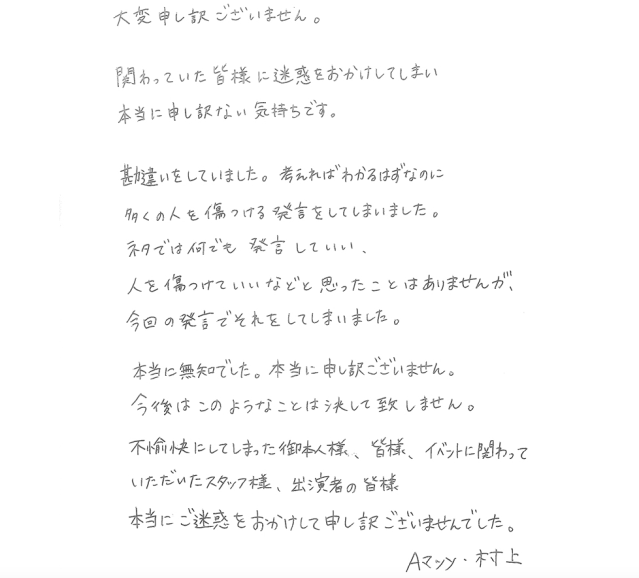 大変申し訳ございません。
関わっていた皆様に迷惑をおかけしてしまい
本当に申し訳ない気持ちです。
勘違いをしていました。考えればわかるはずなのに
多くの人を傷つける発言をしてしまいました。
ネタでは何でも発言していい、
人を傷つけていいなどと思ったことはありませんが、
今回の発言でそれをしてしまいました。
本当に無知でした。本当に申し訳ございません。
今後はこのようなことは決して致しません。
不愉快にしてしまった御本人様、皆様、イベントに関わって
いただいたスタッフ様、出演者の皆様
本当にご迷惑をおかけして申し訳ございませんでした。
Aマッソ・村上